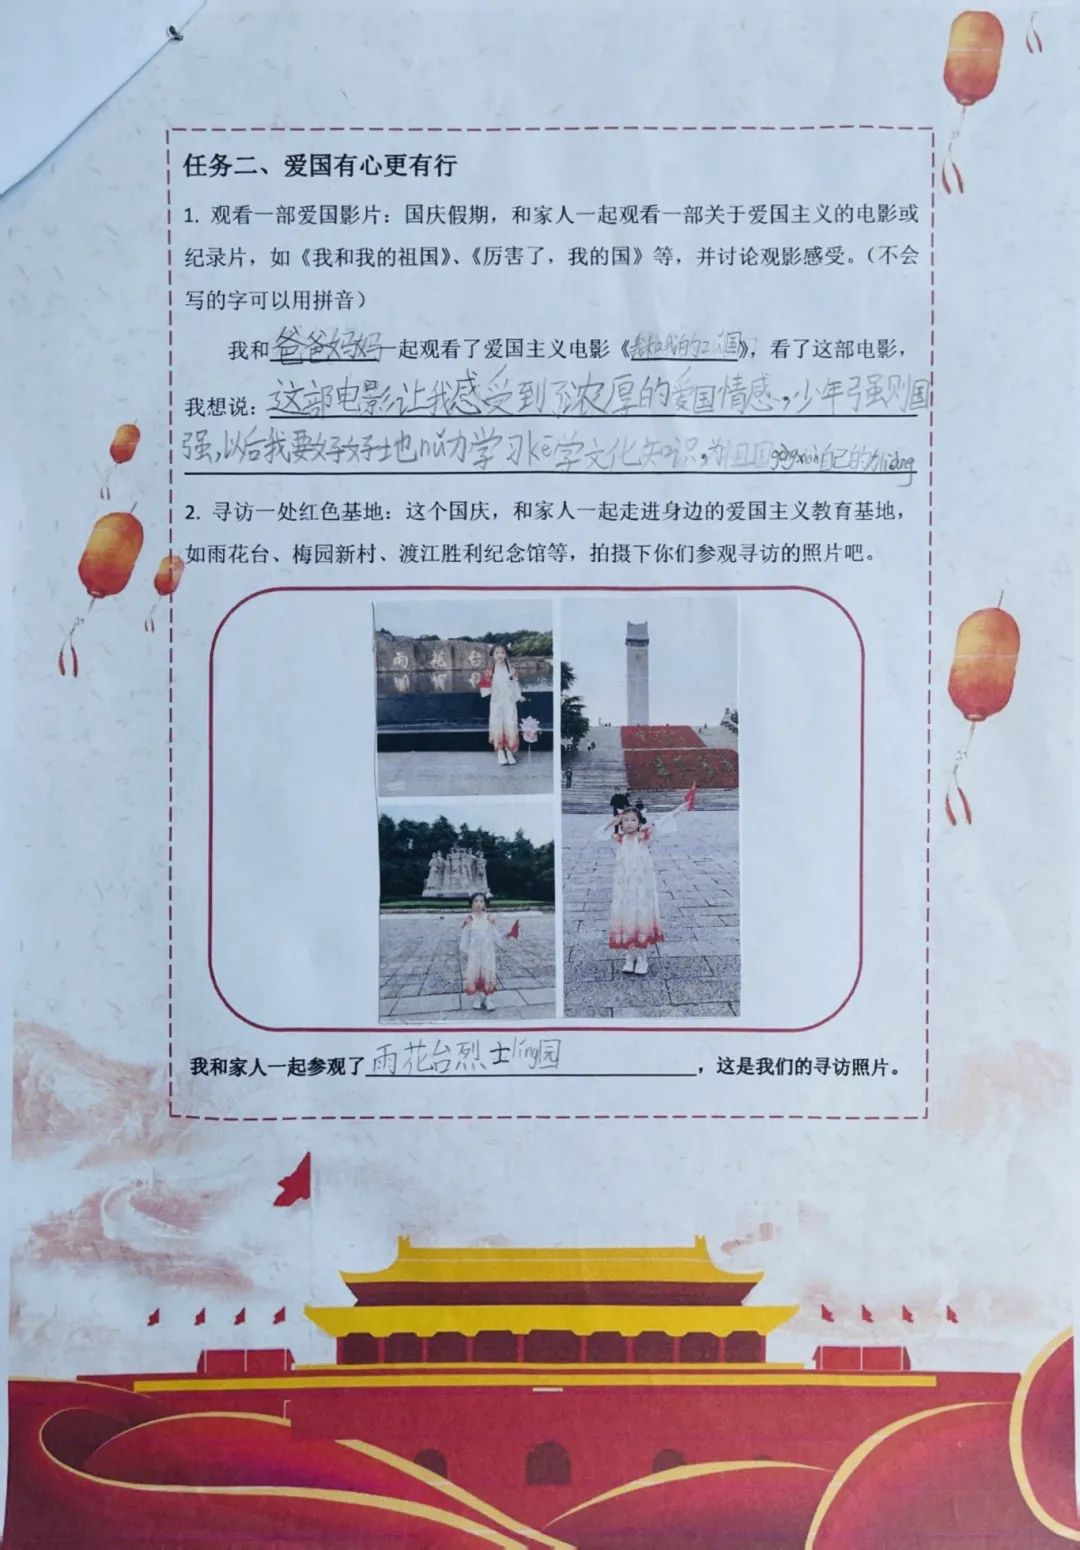 任务二、爱国有心更有行
1. 观看一部爱国影片：国庆假期，和家人一起观看一部关于爱国主义的电影或
纪录片，如《我和我的祖国》、《厉害了，我的国》等，并讨论观影感受。（不会
写的字可以用拼音）
我和爸爸妈妈一起观看了爱国主义电影《我和我的祖国》，看了这部电影，
我想说：这部电影让我感受到了浓厚的爱国情感，少年强则国
强，以后我要好好地nǔ力学习kē学文化知识，为祖国gòngxiàn自己的力liàng
2. 寻访一处红色基地：这个国庆，和家人一起走进身边的爱国主义教育基地，
如雨花台、梅园新村、渡江胜利纪念馆等，拍摄下你们参观寻访的照片吧。
雨花台
我和家人一起参观了雨花台烈士líng园，这是我们的寻访照片。